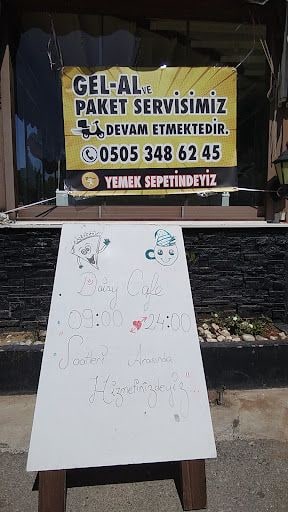 GEL-AL VE
PAKET SERVİSİMİZ
DEVAM ETMEKTEDİR.
0505 348 62 45
YEMEK SEPETİNDEYİZ
Daisy Cafe
09:00 24:00
Saatleri Arasında
Hizmetinizdeyiz